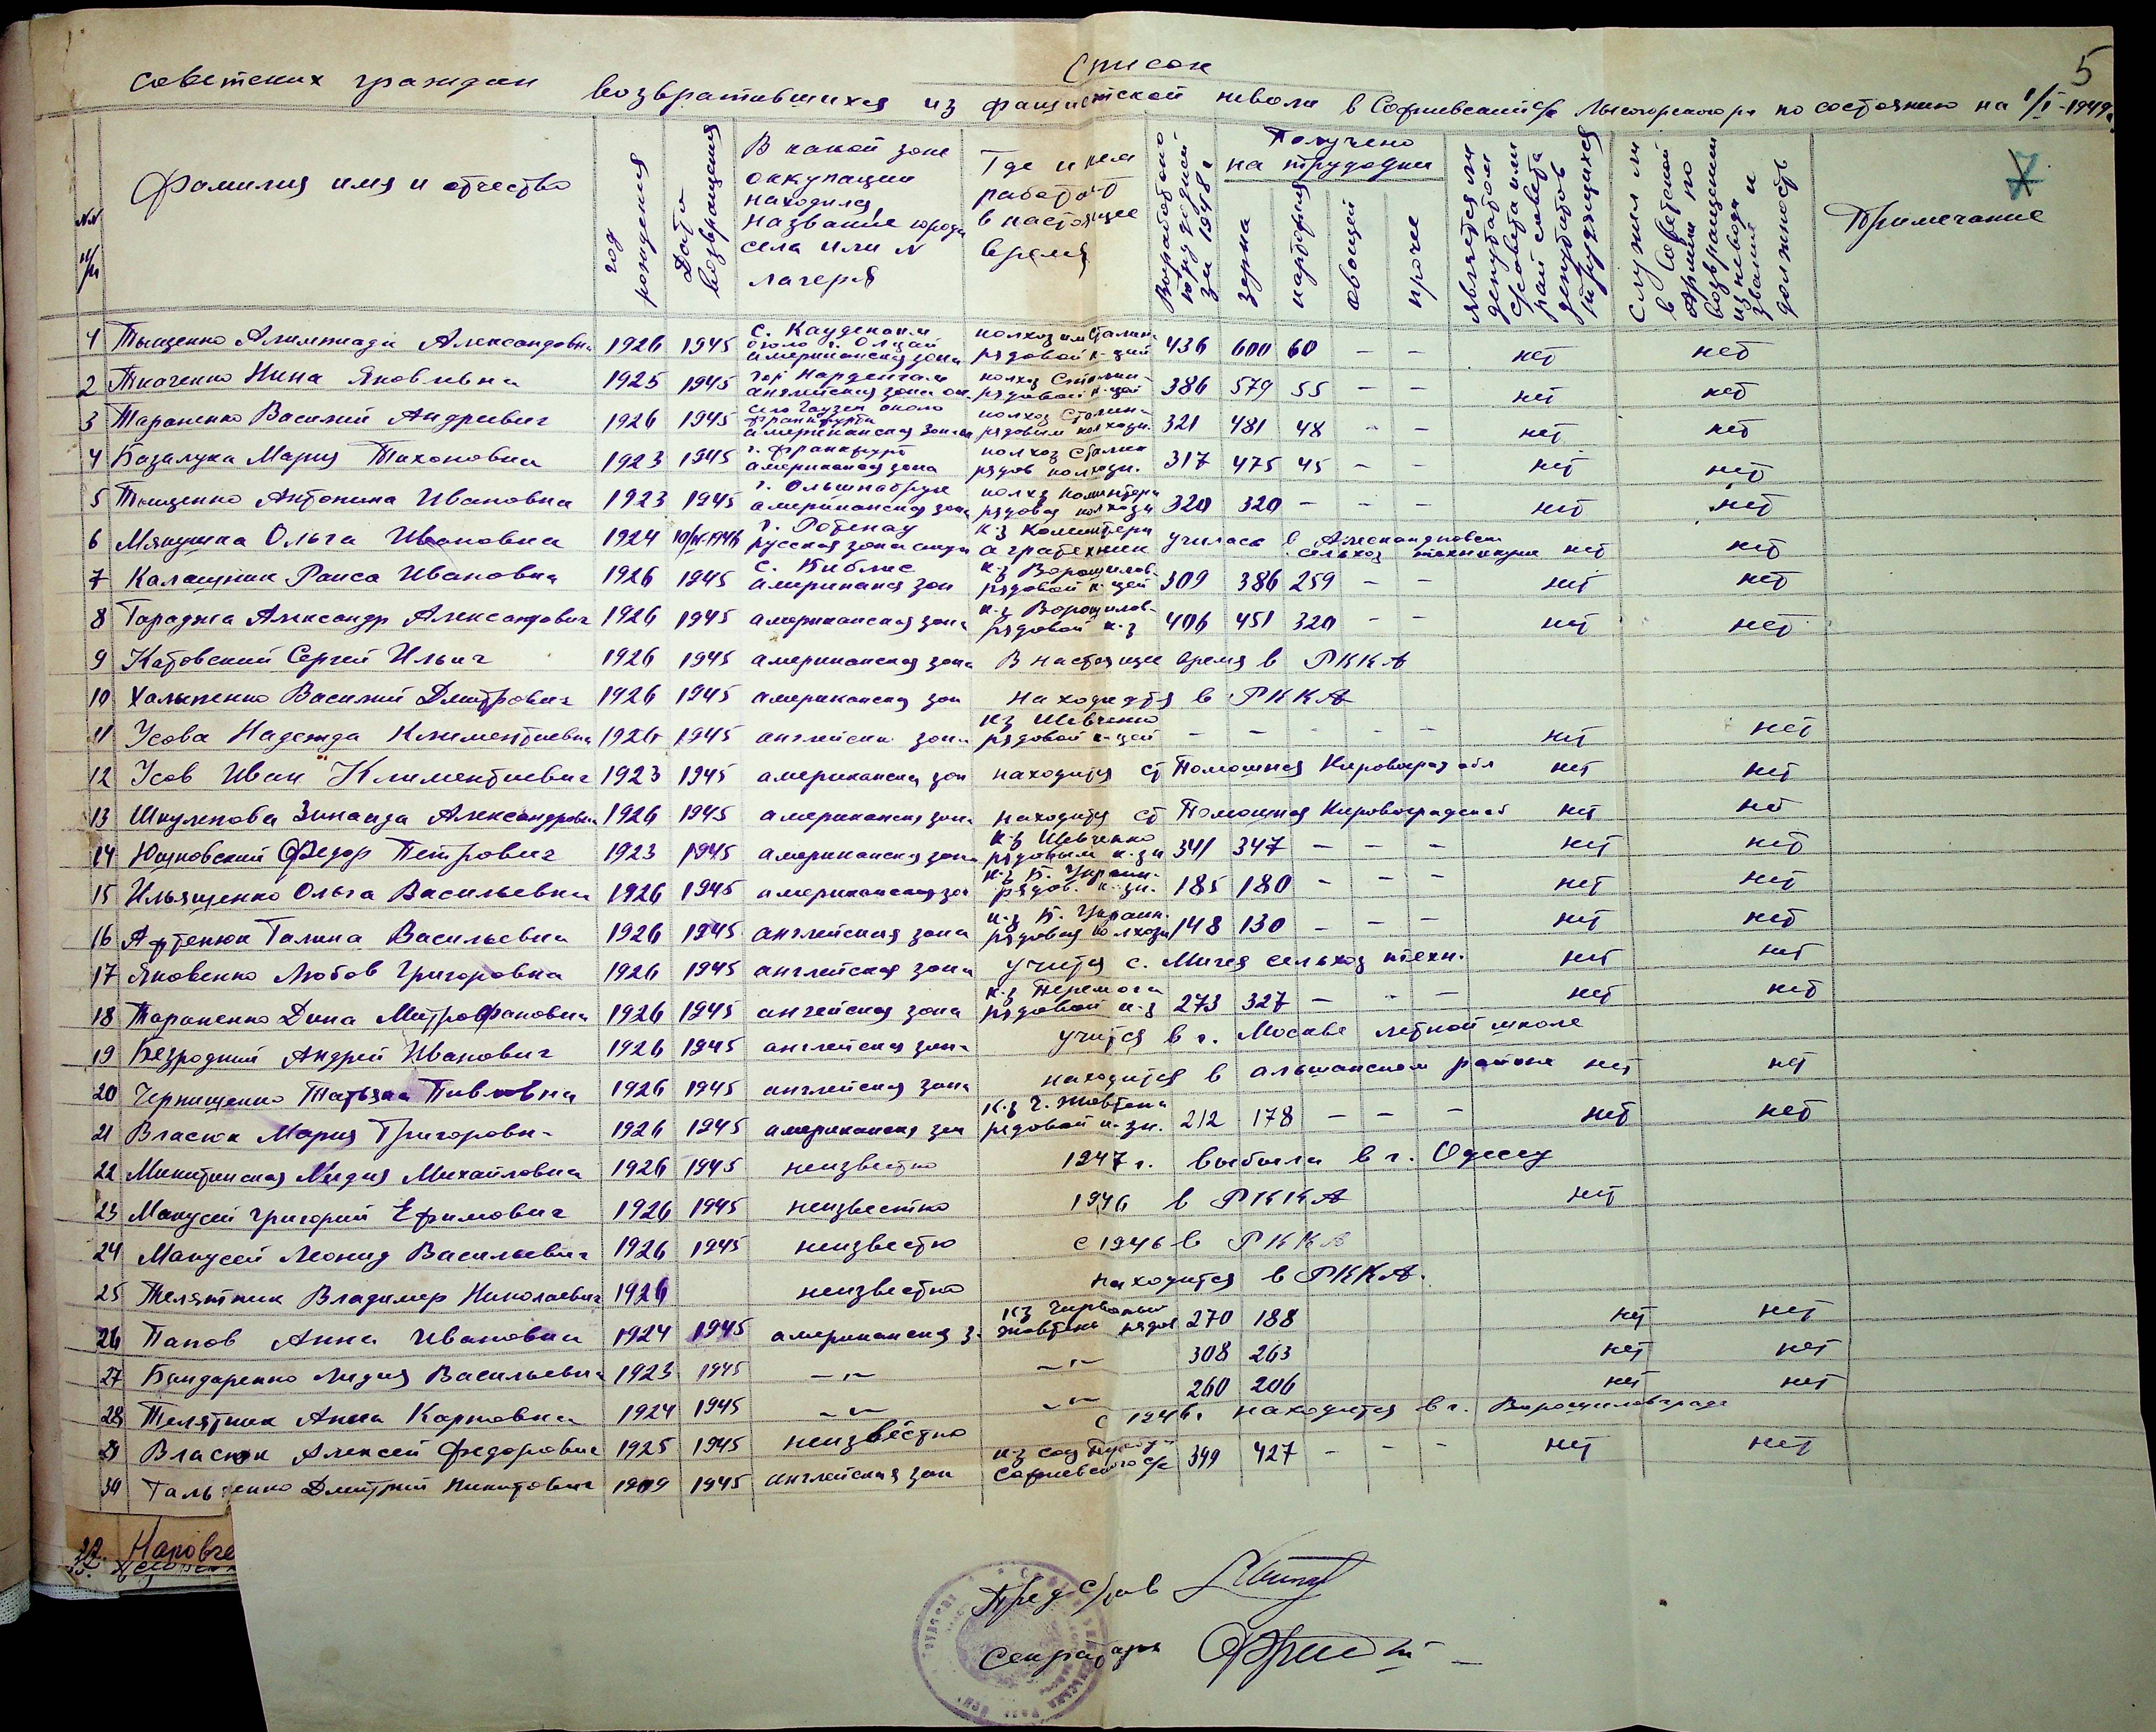 5
Список
советских граждан возвратившихся из фашистской неволи в Софиевский с/с Лысогорского р-н по состоянию на 1/I-1949г.
7
№№ п/п
Фамилия имя и отчество
год рождения
Дата возвращения
В какой зоне оккупации находился, название города села или № лагеря
Где и кем работает в настоящее время
Выработано трудодней за 1948 г
Получено на трудодни
зерна
картофеля
овощей
прочее
является ли депутатом с/совета или рай совета депутатов трудящихся
Служил ли в Советской Армии по возвращении из неволи и звание и должность
Примечание
1 Тыщенко Алимпиада Александровна 1926 1945 с. Кауденхаим около г. американская зона колхоз им Сталин. рядовой к-цей 436 600 60 – – нет нет
2 Ткаченко Нина Яковлевна 1925 1945 гор Норденгам английская зона ок. колхоз Сталин- рядовой к-цей 386 579 55 – – нет нет
3 Тараненко Василий Андреевич 1926 1945 село около Франкфурта американская зона колхоз Сталин- рядовым колхозн. 321 481 48 – – нет нет
4 Базалука Мария Тихоновна 1923 1945 г. Франкфурт американская зона колхоз Сталин рядов колхозн. 317 475 45 – – нет нет
5 Тыщенко Антонина Ивановна 1923 1945 г. американская зона колхз Коминтерн рядовая колхозн 320 320 – – – нет нет
6 Мякушка Ольга Ивановна 1924 1946 г. Ротенау русская зона к-з Коминтерн агратехник училась в Александровск сельхоз техникуме нет нет
7 Калашник Раиса Ивановна 1926 1945 с. Библис американся зон к-з Ворошилов- рядовой к-цей 309 386 259 – – нет нет
8 Гараджа Александр Александрович 1926 1945 американская зона к-з Ворошилов- рядовой к-з 406 451 320 – – нет нет
9 Катовский Сергей Ильич 1926 1945 американская зона В настоящее время в РККА
10 Халыпенко Василий Дмитрович 1926 1945 американска зон находится в РККА
11 Усова Надежда Климентиевна 1926 1945 английска зона к-з Шевченко рядовой к-цей – – – – – нет нет
12 Усов Иван Климентиевич 1923 1945 американска зон находится ст Помошная Кировоград обл нет нет
13 Шкулепова Зинаида Александровна 1926 1945 американска зона находится ст Помошная Кировоградской нет нет
14 Юшковский Федор Петрович 1923 1945 американска зона к-з Шевченко рядовым к-зн 341 347 – – – нет нет
15 Ильященко Ольга Васильевна 1926 1945 американская зон к-з Ч. Украин. рядов. к-зн. 185 180 – – – нет нет
16 Артенюк Галина Васильевна 1926 1945 английская зона к-з Ч. Украин. рядовая колхозн 148 130 – – – нет нет
17 Яковенко Любов Григоровна 1926 1945 английская зона учится с. Мигея сельхоз техн. нет нет
18 Тараненко Дина Митрофановна 1926 1945 ангейская зона к-з Перемога рядовой к-з 273 327 – – – нет нет
19 Безродний Андрей Иванович 1926 1945 английская зона учится в г. Москве летной школе
20 Чернищенко Татьяна Павловна 1926 1945 английская зона находится в альшанском районе нет нет
21 Власюк Мария Григоровн- 1926 1945 американска зон к-з Ч. Жовтень рядовой к-зн. 212 178 – – – нет нет
22 Микитинская Лидия Михайловна 1926 1945 неизвестно 1947 г. выбыла в г. Одессу
23 Макусей Григорий Ефимович 1926 1945 неизвестно 1946 в РККА нет
24 Макусей Леонид Васильевич 1926 1945 неизвестно с 1946 в РККА
25 Телятник Владимер Николаевич 1926 неизвестно находится в РККА.
26 Папов Анна Ивановна 1924 1945 американская з- к-з Жовтень рядов 270 188 нет нет
27 Бандаренко Лидия Васильевна 1923 1945 –"– –"– 308 263 нет нет
28 Телятник Анна Карповна 1924 1945 –"– –"– 260 206 нет нет
29 Власюк Алексей Федорович 1925 1945 неизвестно с 1946г находится в г. Ворошиловграде
30 Гальченко Дмитрий Никитович 1909 1945 английская зон к-з Софиевского с/с 349 427 – – – нет нет
32. Наровче
Пред с/сов
Секратарь